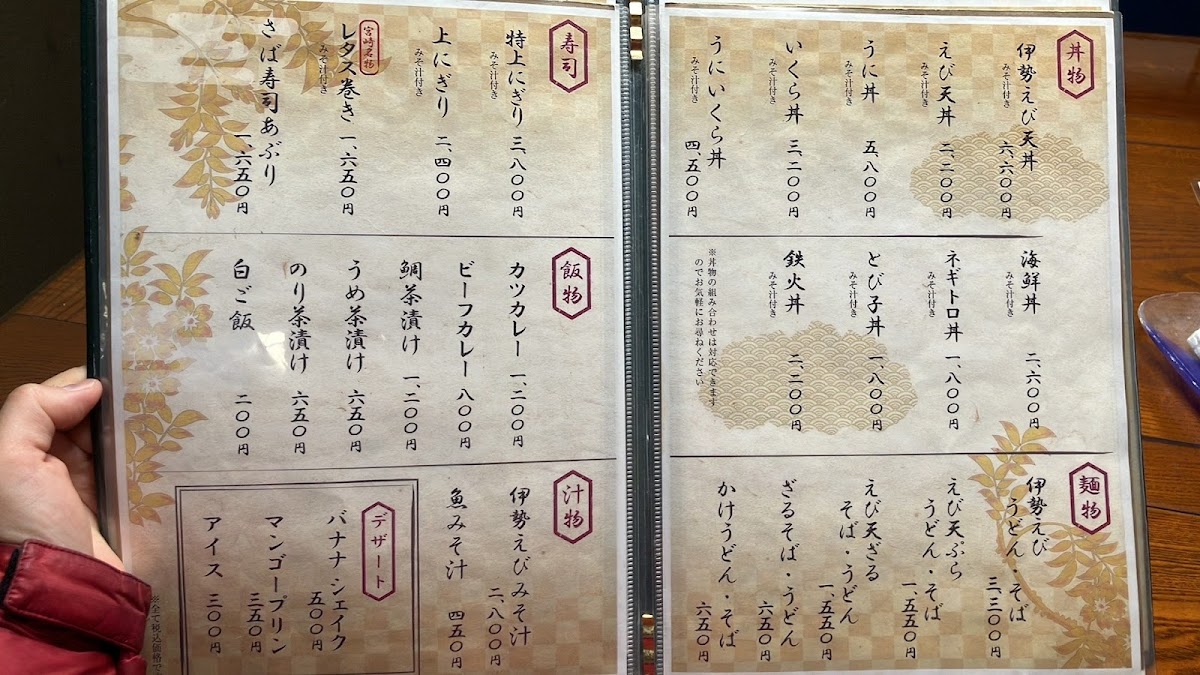 丼物
伊勢えび天丼
みそ汁付き
六、六〇〇円
えび天丼
みそ汁付き
二、二〇〇円
うに丼
みそ汁付き
五、八〇〇円
いくら丼
みそ汁付き
三、二〇〇円
うにいくら丼
みそ汁付き
四、五〇〇円
海鮮丼
みそ汁付き
二、六〇〇円
ネギトロ丼
みそ汁付き
一、八〇〇円
とび子丼
みそ汁付き
一、八〇〇円
鉄火丼
みそ汁付き
二、二〇〇円
※丼物の組み合わせは対応できます
のでお気軽にお尋ねください
麺物
伊勢えび
うどん・そば
三、三〇〇円
えび天ぷら
うどん・そば
一、五五〇円
えび天ざる
そば・うどん
一、五五〇円
ざるそば・うどん
六五〇円
かけうどん・そば
六五〇円
寿司
特上にぎり
みそ汁付き
三、八〇〇円
上にぎり
みそ汁付き
二、四〇〇円
宮崎名物
レタス巻き
みそ汁付き
一、六五〇円
さば寿司あぶり
一、六五〇円
飯物
カツカレー 一、二〇〇円
ビーフカレー 八〇〇円
鯛茶漬け 一、二〇〇円
うめ茶漬け 六五〇円
のり茶漬け 六五〇円
白ご飯 二〇〇円
汁物
伊勢えびみそ汁
二、八〇〇円
魚みそ汁 四五〇円
デザート
バナナシェイク
五〇〇円
マンゴープリン
三五〇円
アイス 三〇〇円
※全て税込価格で